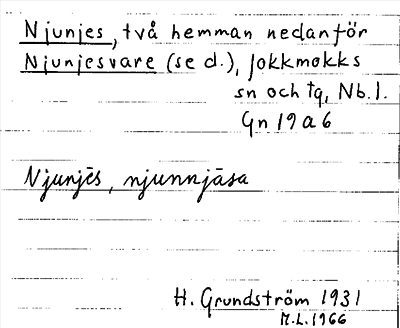 Njunjes, två hemman nedanför
Njunjesvare (se d.), Jokkmokks
sn och tg, Nb.l.
Gn 19 a 6
Njunjēs, njunnjāsa
H. Grundström 1931
M.L. 1966